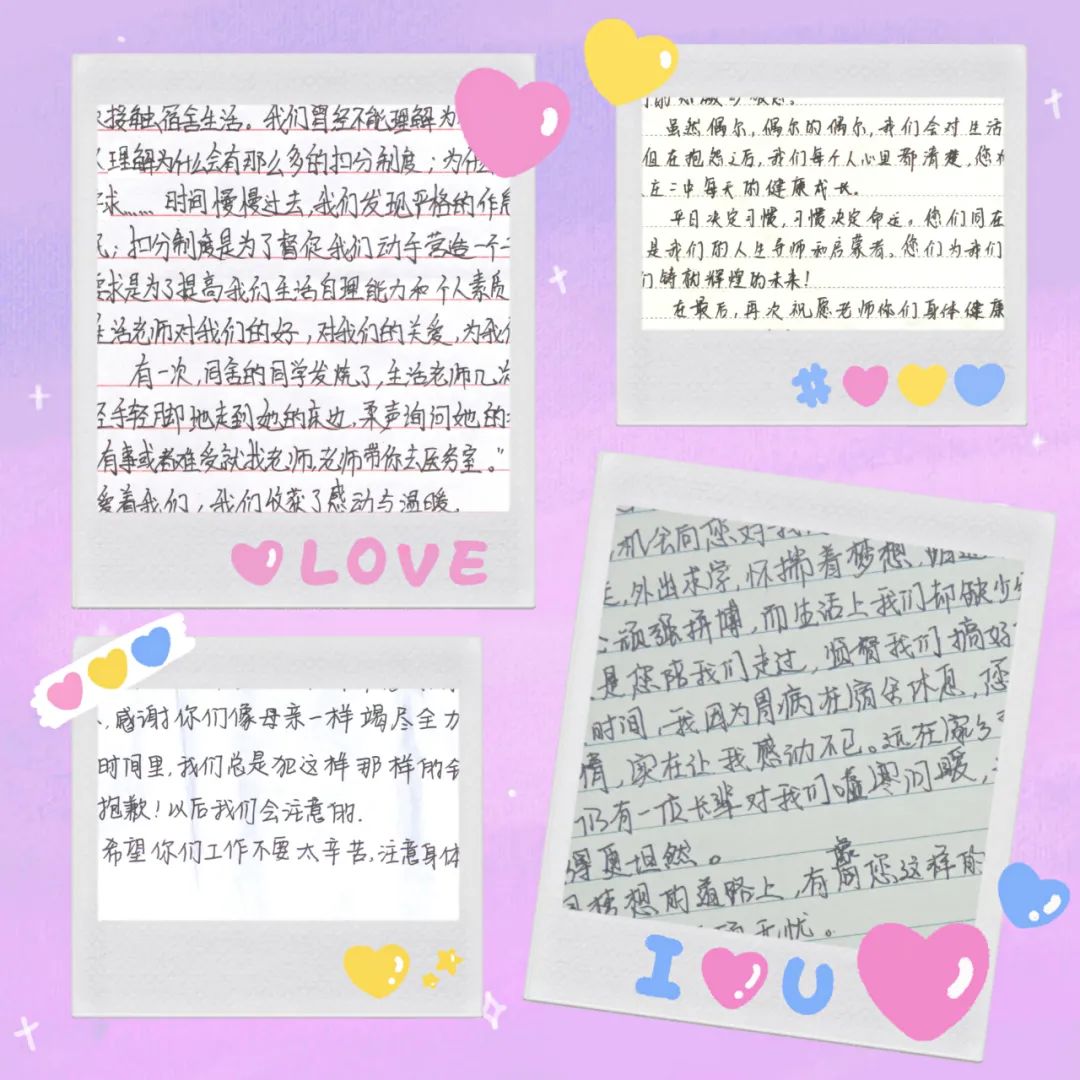 接触宿舍生活。我们曾经不能理解为
理解为什么会有那么多的扣分制度；为什
求…… 时间慢慢过去，我们发现严格的作息
；扣分制度是为了督促我们动手营造一个
求是为了提高我们生活自理能力和个人素质
生活老师对我们的好，对我们的关爱，为我们
有一次，同舍的同学发烧了，生活老师几次
手轻脚地走到她的床边，柔声询问她的
有事或者难受就找老师，老师带你去医务室。”
爱着我们，我们收获了感动与温暖.
LOVE
虽然偶尔，偶尔的偶尔，我们会对生活
但在抱怨之后，我们每个人心里都清楚，您
在二中每天的健康成长。
平日决定习惯，习惯决定命运。您们同在
是我们的人生导师和启蒙者。您们为我们
们铸就辉煌的未来！
在最后，再次祝愿老师你们身体健康
#
，感谢你们像母亲一样竭尽全力
时间里，我们总是犯这样那样的
抱歉！以后我们会注意的.
希望你们工作不要太辛苦，注意身体
机会向您对我
，外出求学，怀揣着梦想，
顽强拼搏，而生活上我们却缺少
是您陪我们走过，监督我们搞好
时间，我因为胃病在宿舍休息，您
情，实在让我感动不已。远在家乡
仍有一位长辈对我们嘘寒问暖，
得更坦然。
梦想的道路上，有像您这样的
无忧。
I U